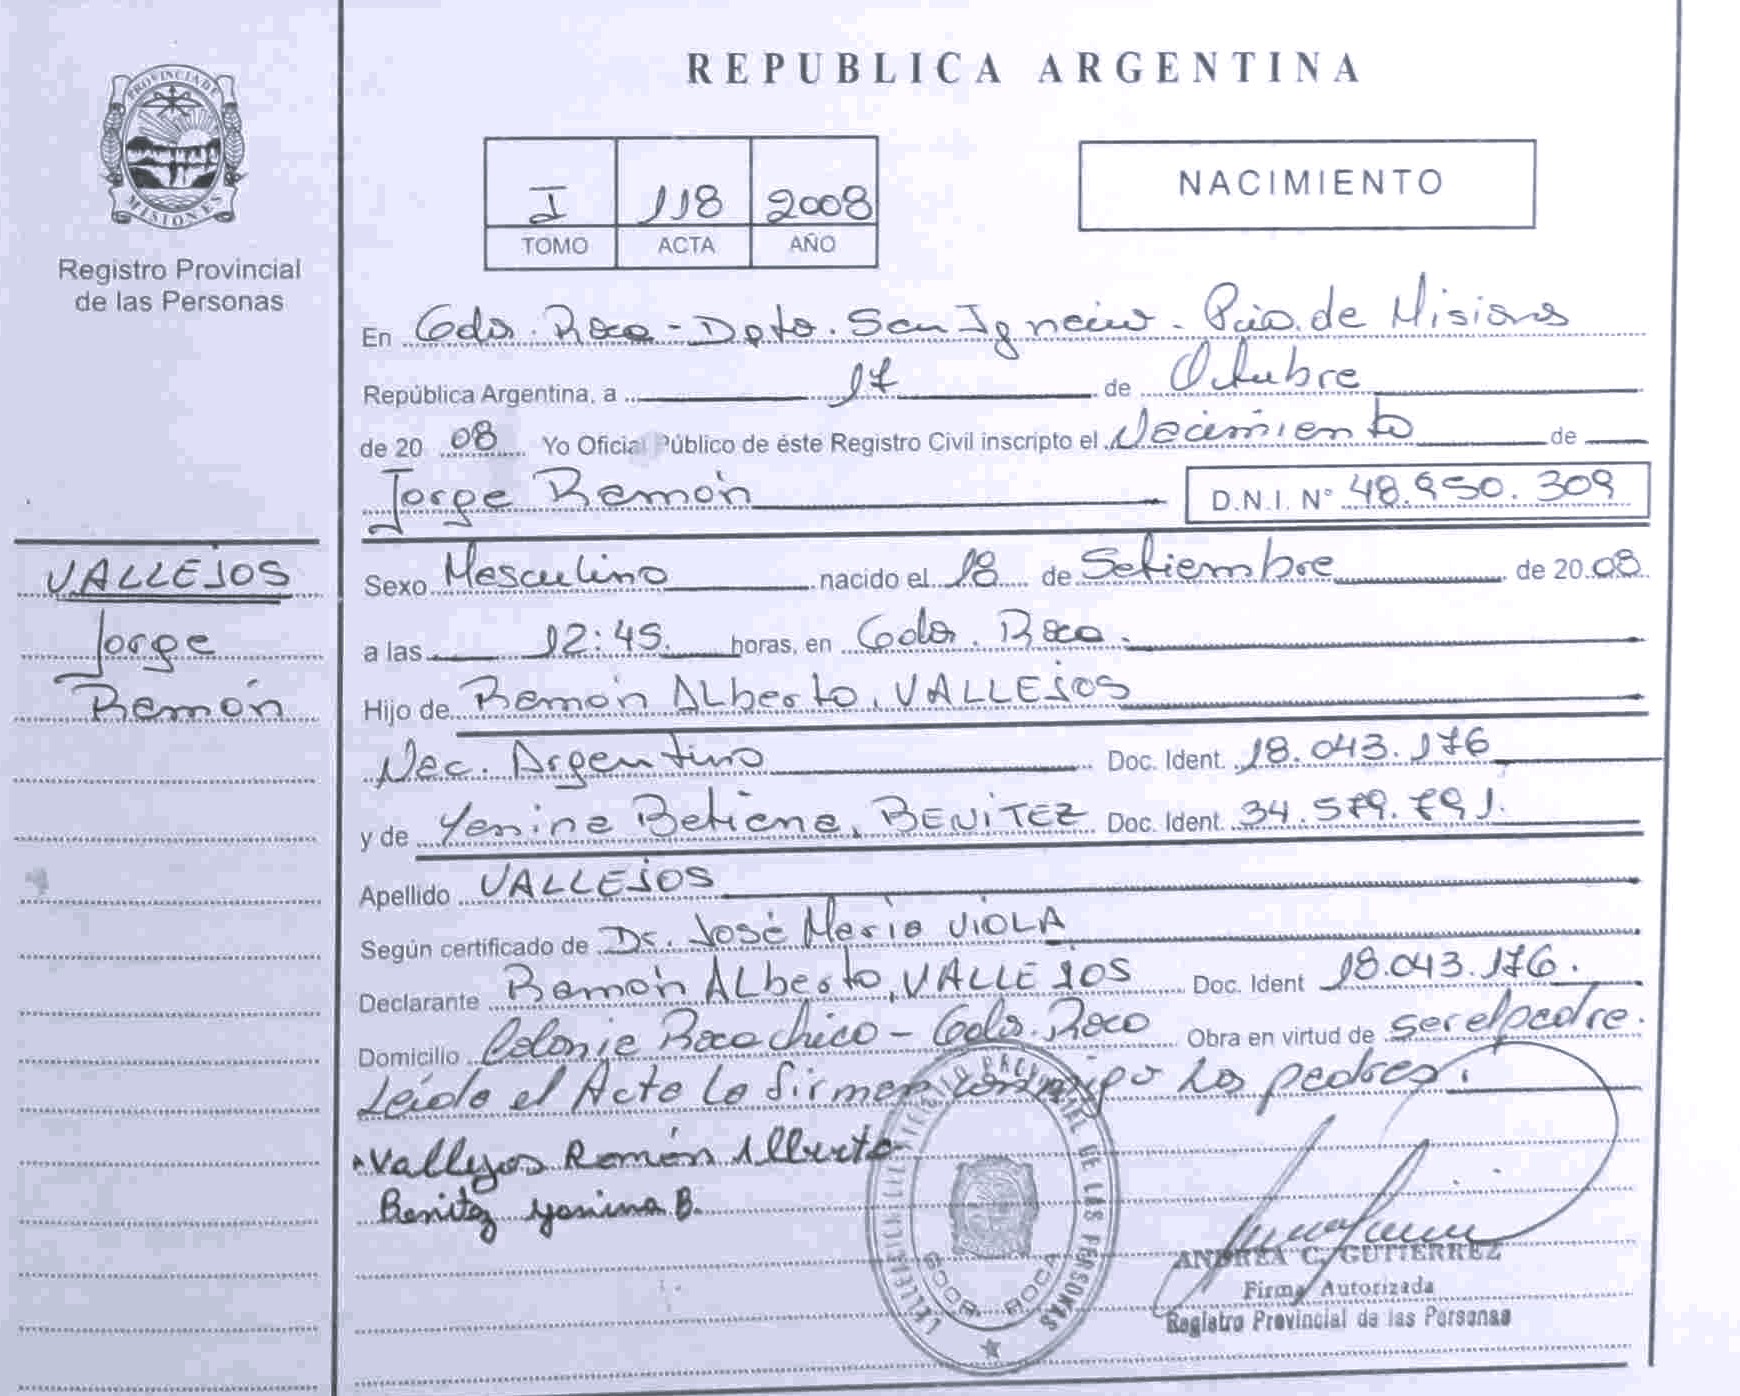 PROVINCIA DE
MISIONES
Registro Provincial
de las Personas
VALLEJOS
Jorge
Ramón
REPUBLICA ARGENTINA
I 118 2008
TOMO ACTA AÑO
NACIMIENTO
En Gdor. Roca - Dpto. San Ignacio - Pcia. de Misiones
República Argentina, a 17 de Octubre
de 20 08 Yo Oficial Público de éste Registro Civil inscripto el Nacimiento de
Jorge Ramón D.N.I. N° 48.950.309
Sexo Masculino nacido el 18 de Setiembre de 20 08
a las 12:45. horas, en Gdor. Roca.
Hijo de Ramón Alberto, VALLEJOS
Nac. Argentino Doc. Ident. 18.043.176
y de Yanina Betiana, BENITEZ Doc. Ident. 34.579.791.
Apellido VALLEJOS
Según certificado de Dr. José María VIOLA
Declarante Ramón Alberto, VALLEJOS Doc. Ident 18.043.176.
Domicilio Colonia Roca chica - Gdor. Roca Obra en virtud de ser el padre.
Leída el Acta la firman conmigo los padres.
Vallejos Ramón Alberto
Benitez Yanina B.
PROVINCIAL DE LAS PERSONAS
ROCA
ANDREA C. GUTIERREZ
Firma Autorizada
Registro Provincial de las Personas